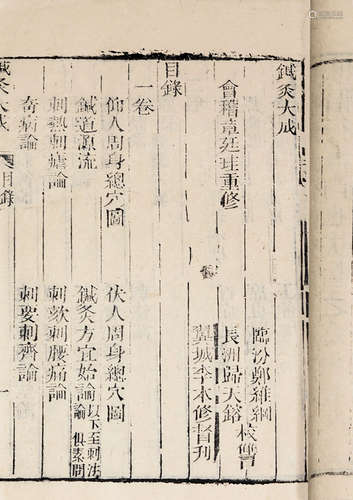 鍼灸大成
會稽章廷珪重修
臨汾鄭維綱
長洲歸天鎔
校讐
翼城李本修督刊
目錄
一卷
仰人周身總穴圖
伏人周身總穴圖
鍼道源流
鍼灸方宜始論以下至刺法論俱素問
刺熱刺瘧論
刺欬刺腰痛論
奇病論
刺要刺齊論
鍼灸大成
目錄
一